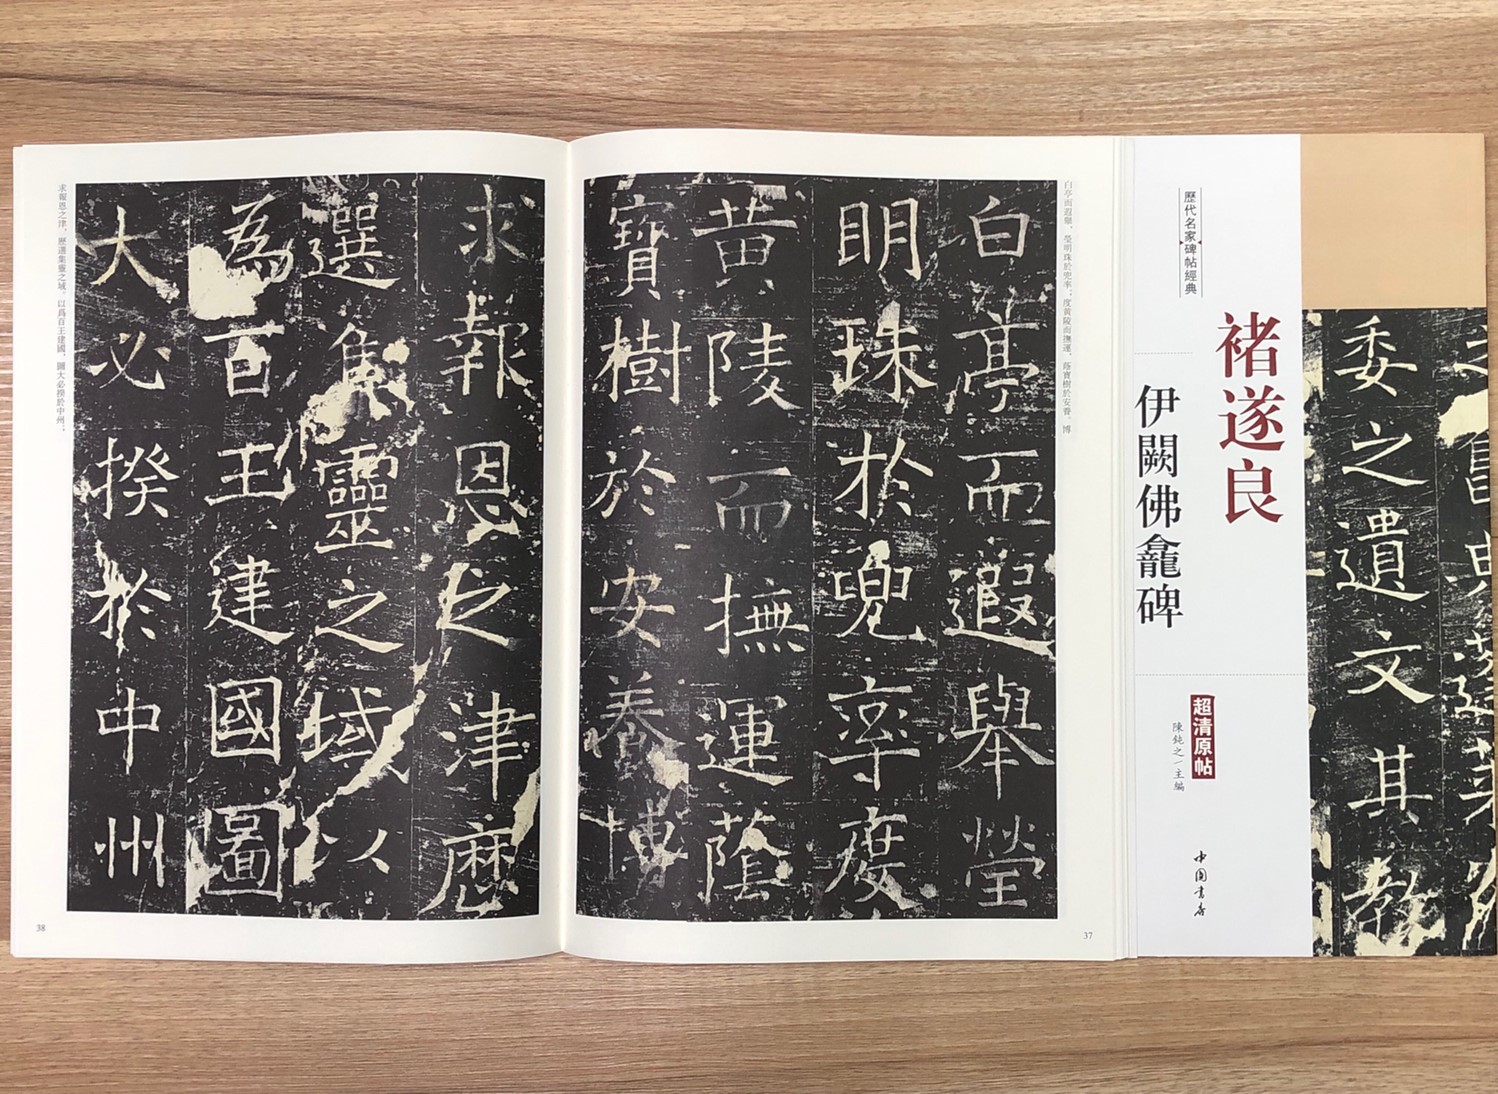 委之遺文其教
褚遂良
歷代名家碑帖經典
伊闕佛龕碑
超清原帖
陳鈍之/主編
中國書店
白亭而遐舉，瑩明珠於兜率；度黃陵而撫運，蔭寶樹於安養。博
白亭而遐舉瑩
明珠於兜率度
黃陵而撫運蔭
寶樹於安養博
37
求報恩之津歷
選集靈之域以
為百王建國圖
大必揆於中州
求報恩之津，歷選集靈之域。以爲百王建國，圖大必揆於中州；
38